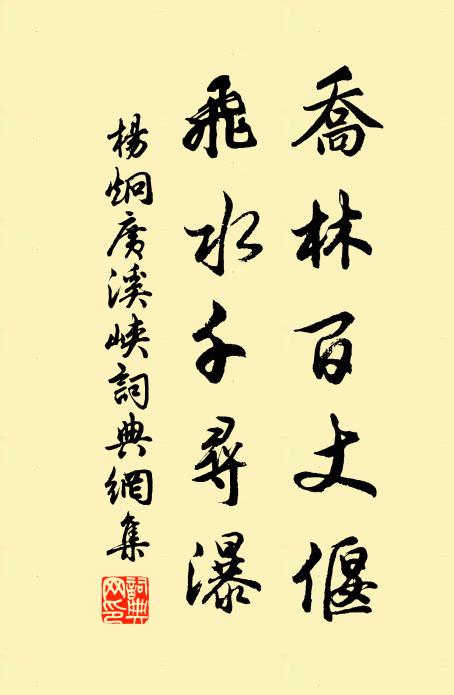 喬林百丈偃
飛水千尋瀑
楊炯廣溪峽詞典網集
詞典網印